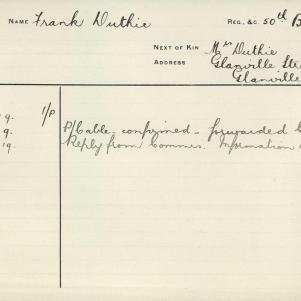 NAME Frank Duthie REG., &C. 50th B
NEXT OF KIN Mrs Duthie
ADDRESS Glanville St
Glanville
9. 1/P P/Cable confirmed forwarded
9. Reply from Commrs. Information
19.